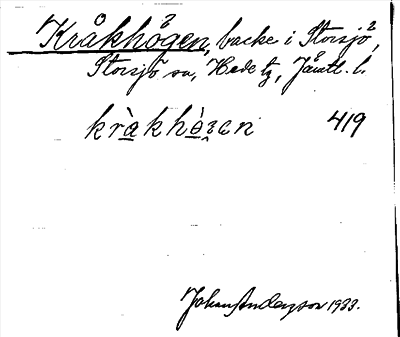 Kråkhögen, backe i Storsjö²,
Storsjö sn, Hede tg, Jämtl. l.
kràkhò̱gen 419
Johan Anderzon 1933.